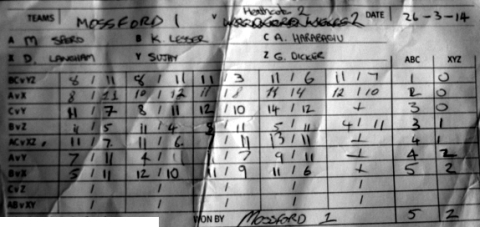 TEAMS MOSSFORD 1 V Heathcote 2 DATE 26-3-14
A M. SPERO B K. LESSER C A. HARABAGIU
X D. LANGHAM Y SUJAY Z G. DICKER ABC XYZ
BCvYZ 8 / 11 8 / 11 11 / 3 11 / 6 11 / 7 1 0
AvX 8 / 11 10 / 12 11 / 8 14 12 / 10 2 0
CvY 11 / 7 8 / 11 12 / 10 14 / 12 / 3 0
BvZ / 5 11 / 4 / 11 5 / 11 4 / 11 3 1
ACvXZ 11 / 7 11 / 6 / 11 13 / 11 / 4 1
AvY 7 / 11 4 / / 7 9 / 11 / 4 2
BvX 5 / 11 12 / 10 11 / 9 11 / 6 / 5 2
CvZ / / / / /
ABvXY / / / / /
WON BY MOSSFORD 1 5 2